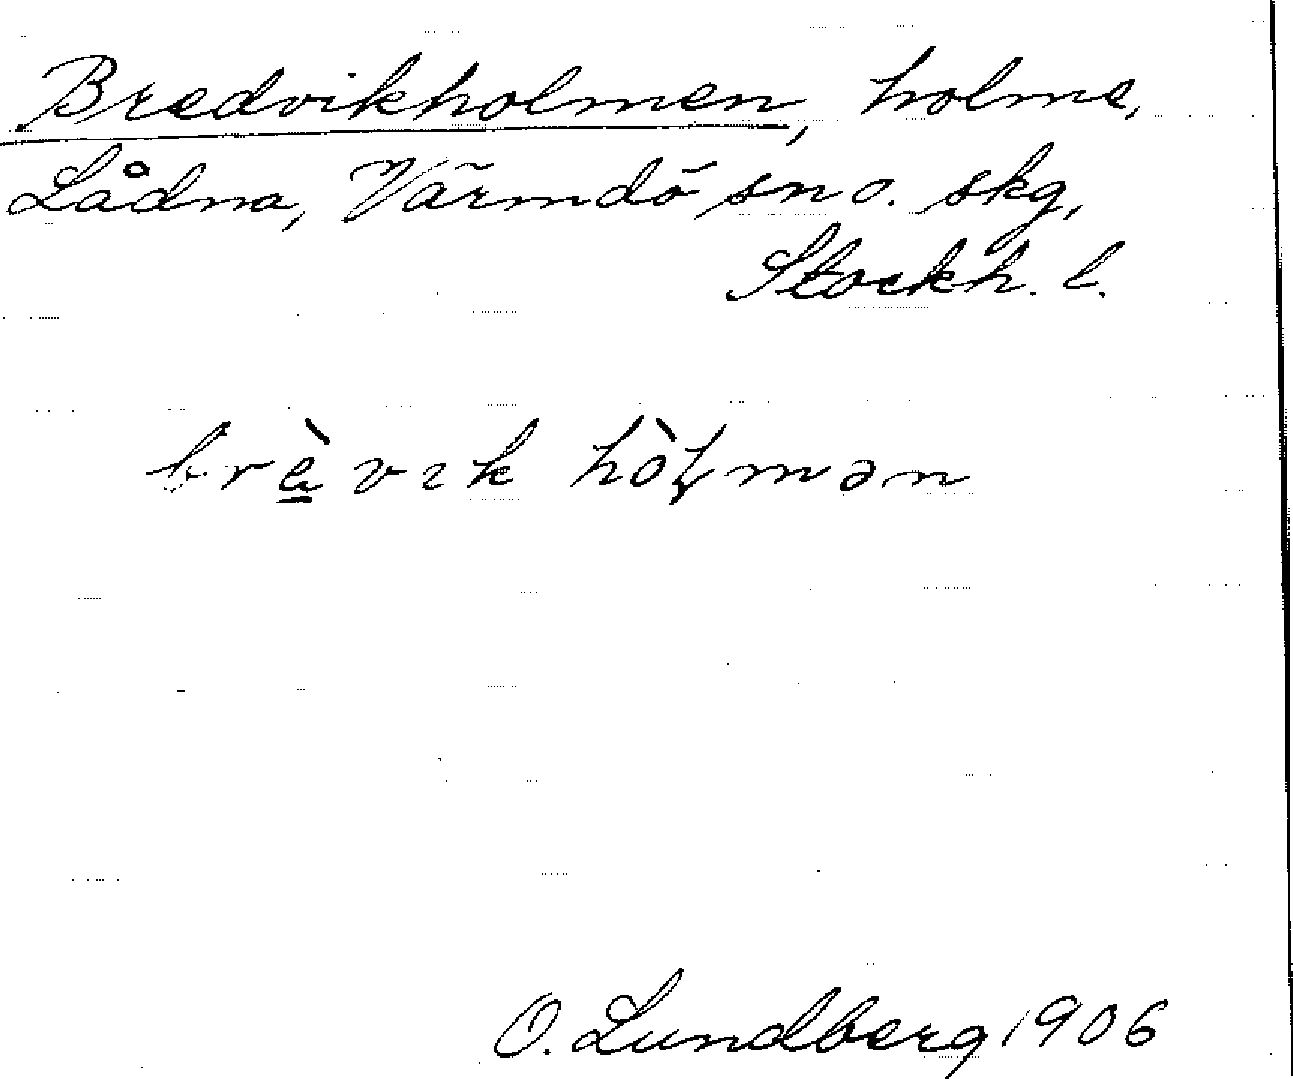 Bredvikholmen, holme,
Lådna, Värmdö sn o. skg,
Stockh. l.
brè̱vɩk hòɫmən
O. Lundberg 1906